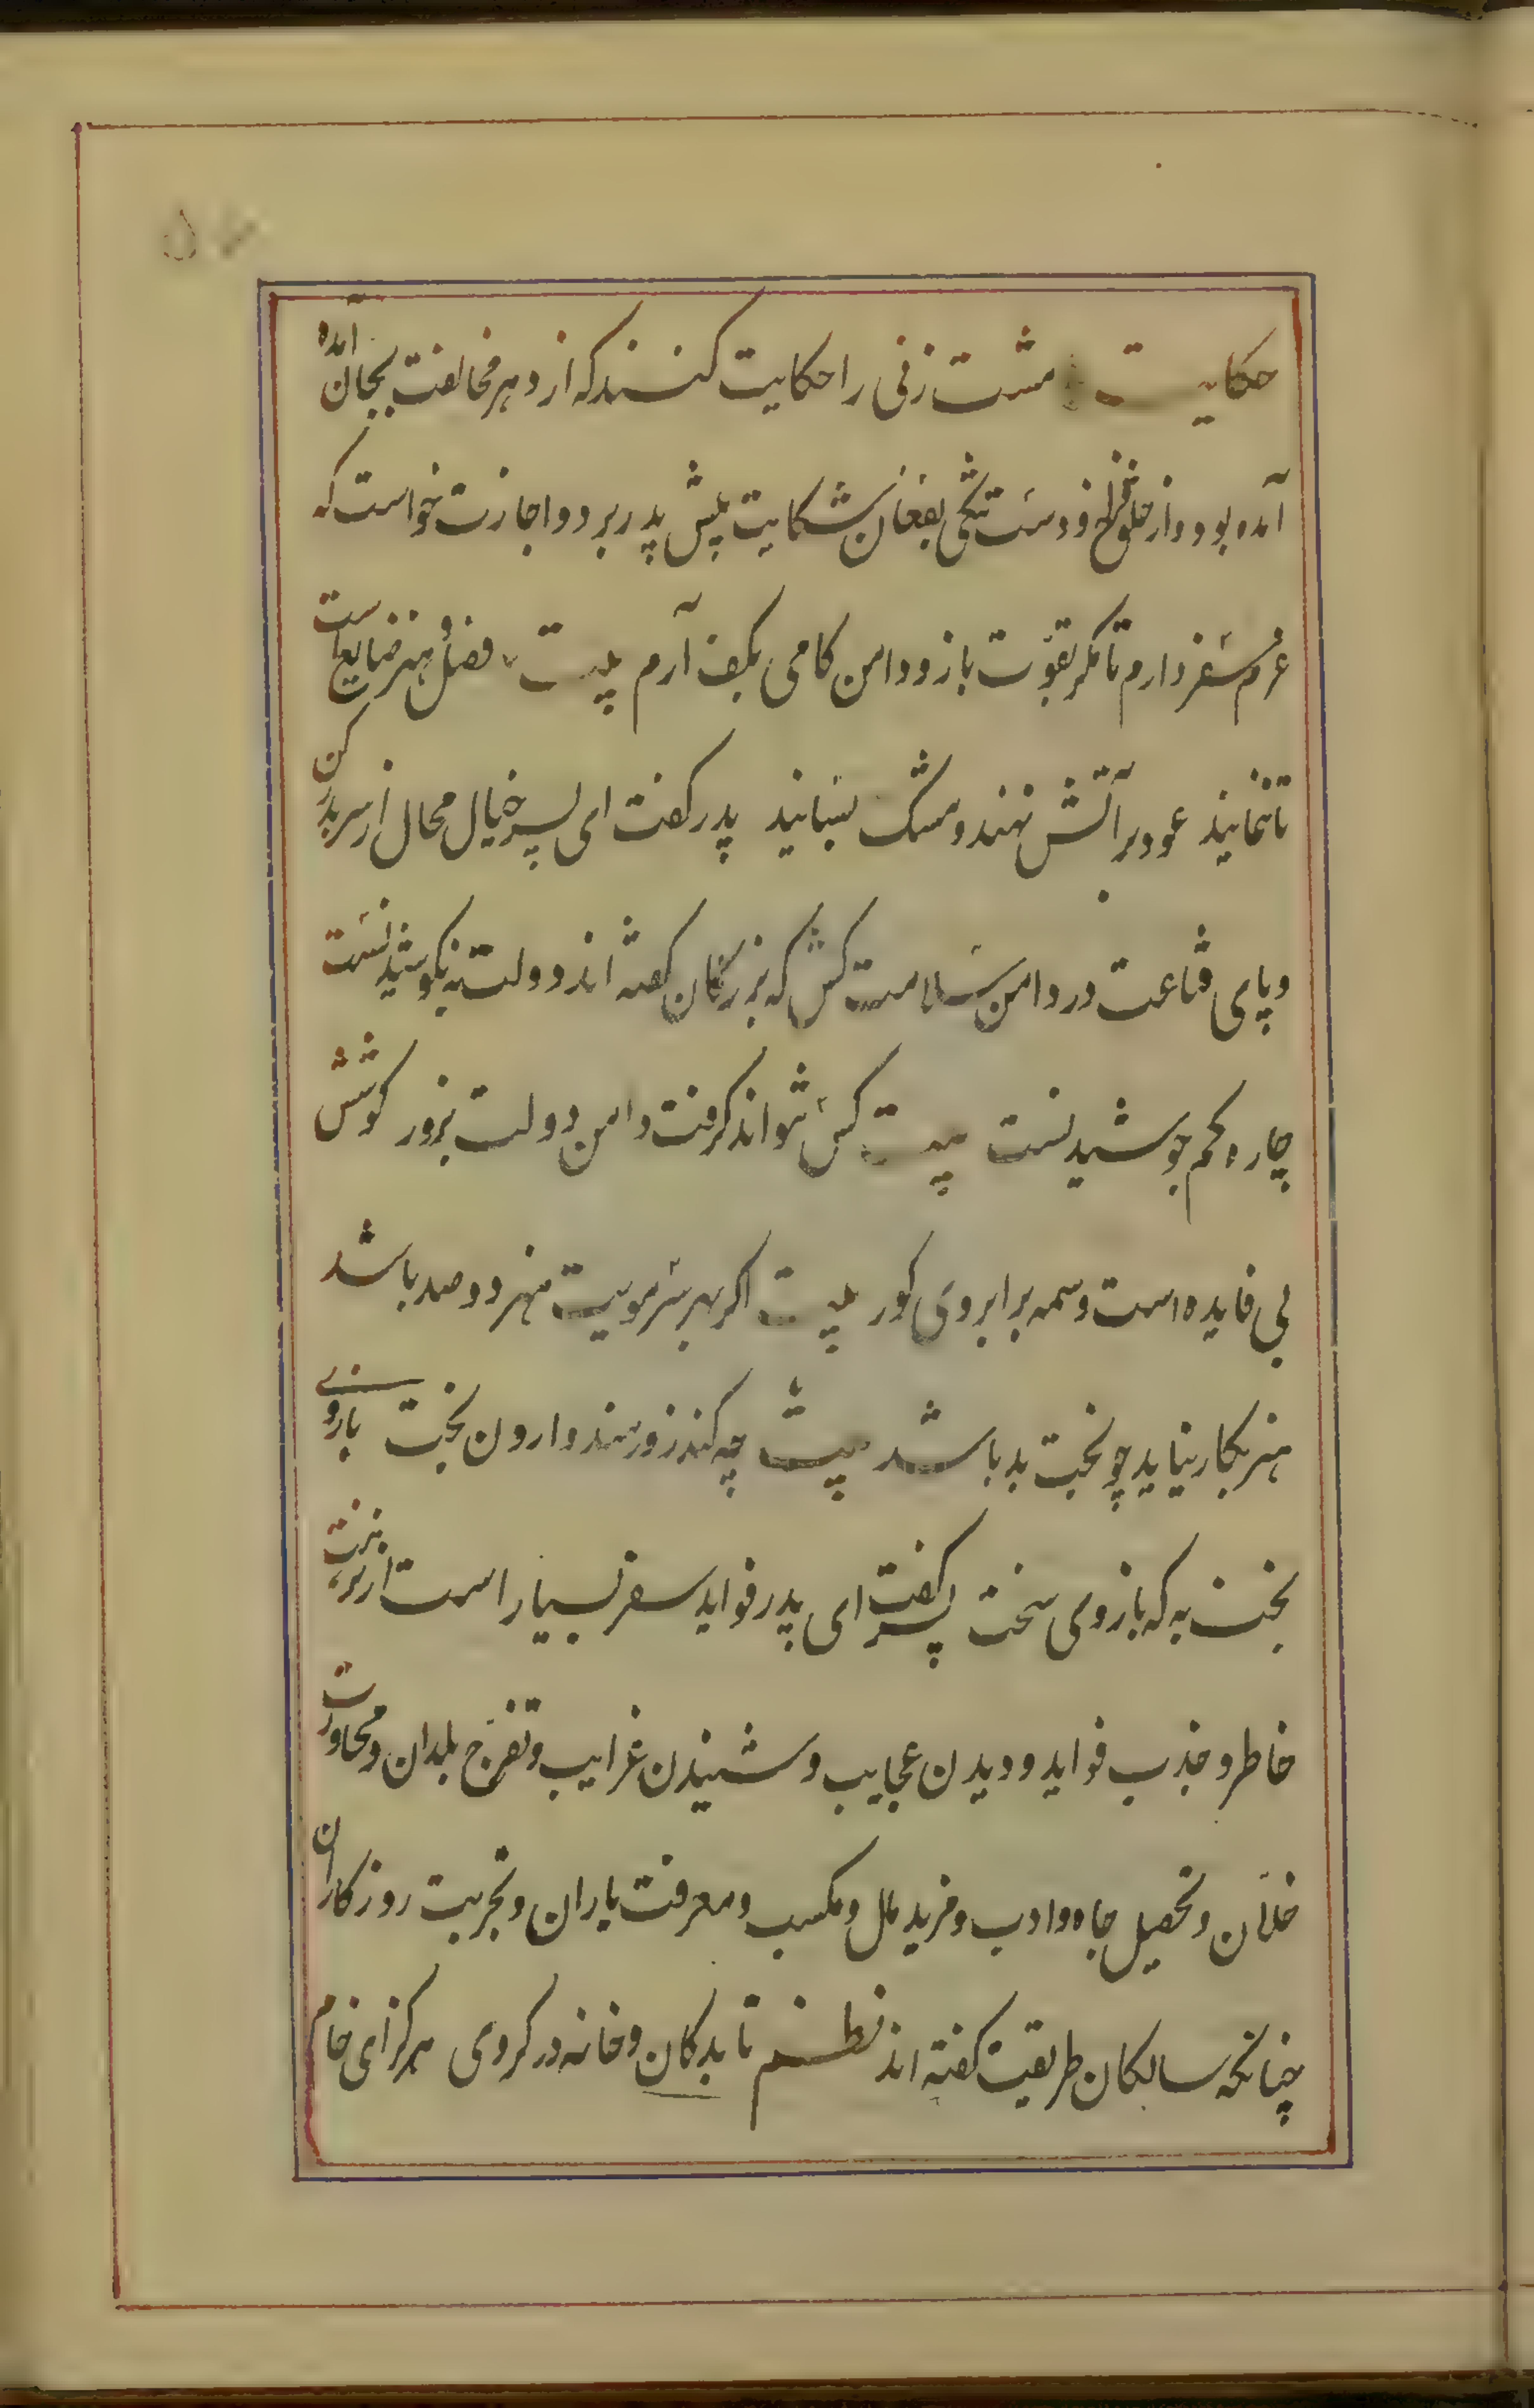 حکایت مشت زنی را حکایت کنند که از دهر مخالف بجان آمده
آمده بود و از حلق فراخ و دست تنگی بفغان شکایت پیش پدر برد و اجازت خواست که
عزم سفر دارم تا مگر بقوّت بازو دامن کامی بکف آرم بیت فضل و هنر ضایع است
تا ننمایند عود بر آتش نهند و مشک بسایند پدر گفت ای پسر خیال محال از سر بدر کن
و پای قناعت در دامن سلامت کش که بزرگان گفته اند دولت نه بکوشیدنست
چاره کم جوشیدنست بیت کس نتواند گرفت دامن دولت بزور کوشش
بی فایده است وسمه بر ابروی کور بیت اگر بهر سر مویت هنر دو صد باشد
هنر بکار نیاید چو بخت بد باشد بیت چه کند زورمند وارون بخت بازوی
بخت به که بازوی سخت پسر گفت ای پدر فواید سفر بسیار است از نزهت
خاطر و جذب فواید و دیدن عجایب و شنیدن غرایب و تفرّج بلدان و محاورت
خلّان و تحصیل جاه و ادب و مزید مال و مکسب و معرفت یاران و تجربت روزگاران
چنانکه سالکان طریقت گفته اند نظم تا بدکان و خانه در گروی هرگز ای خام